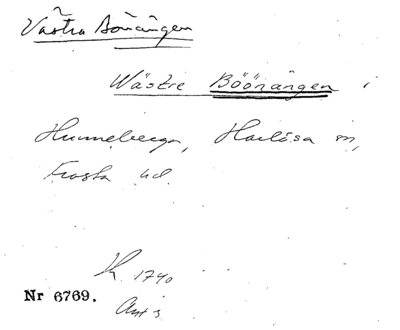 Västra Bönängen
Wästre Böönängen i
Hunneberga, Harlösa sn,
Frosta hd.
K 1740
Nr 6769.